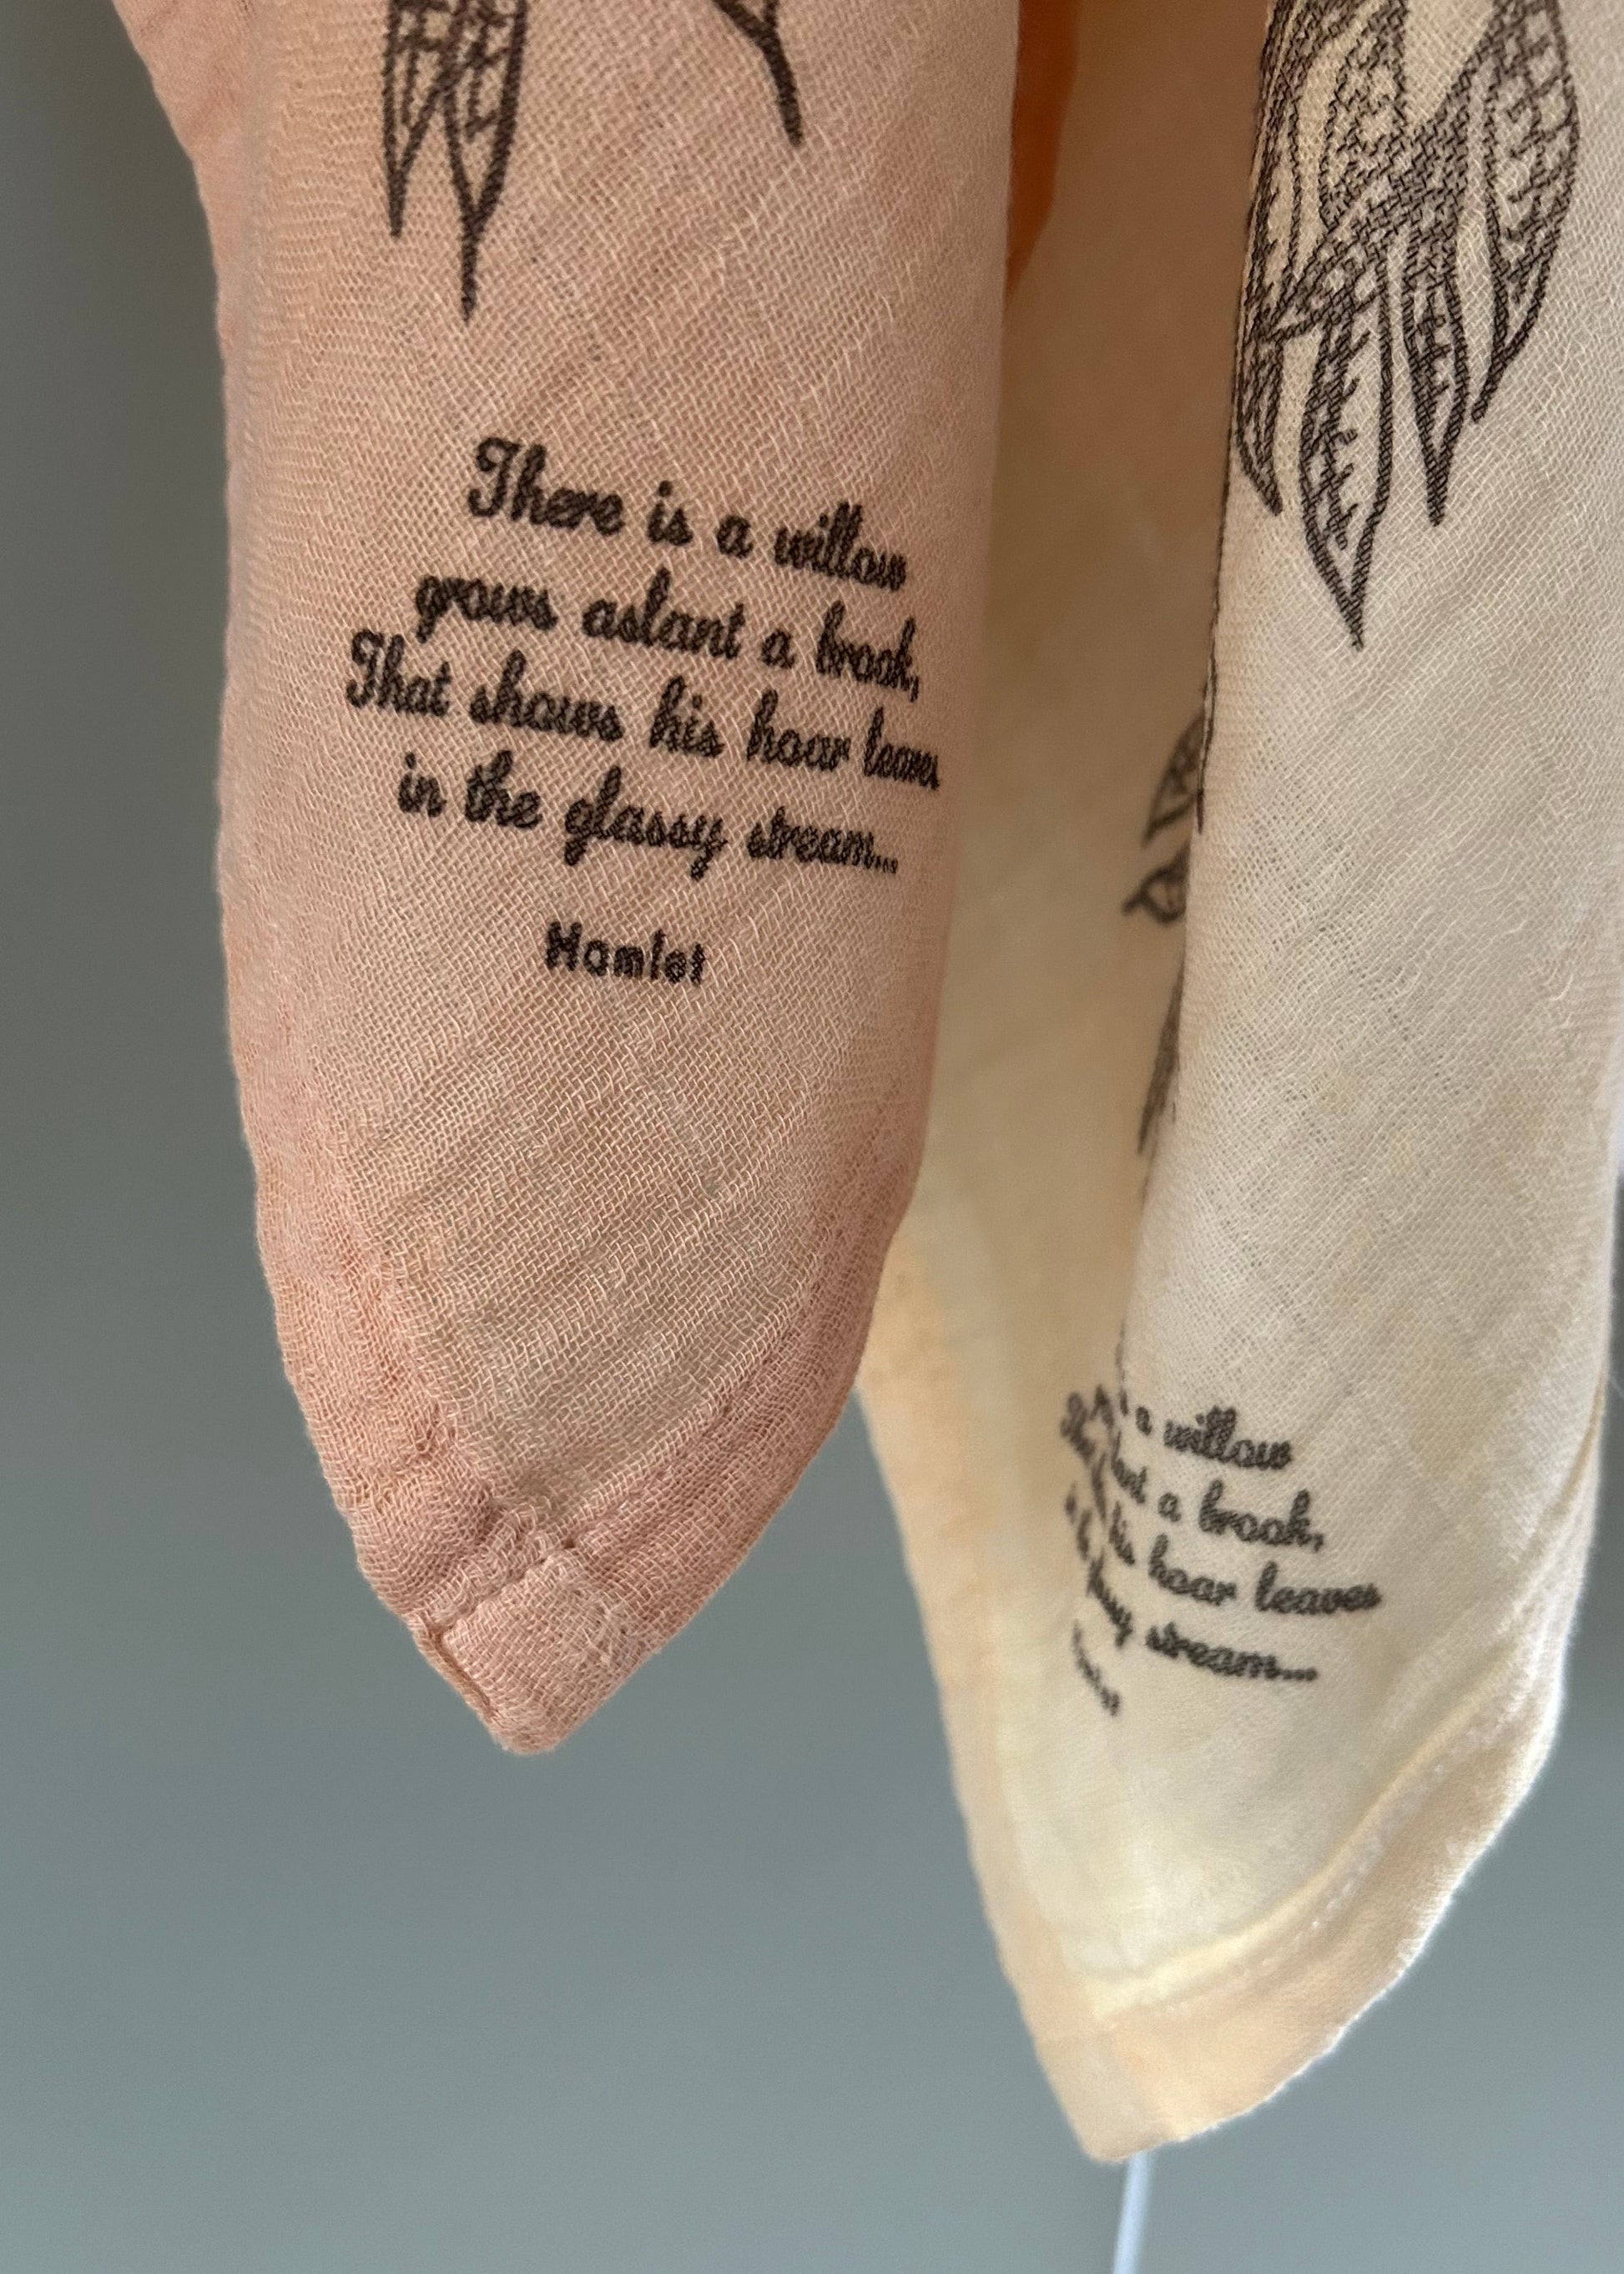 There is a willow
grows aslant a brook,
That shows his hoar leaves
in the glassy stream...
Hamlet
a willow
a brook,
his hoar leaves
glassy stream...